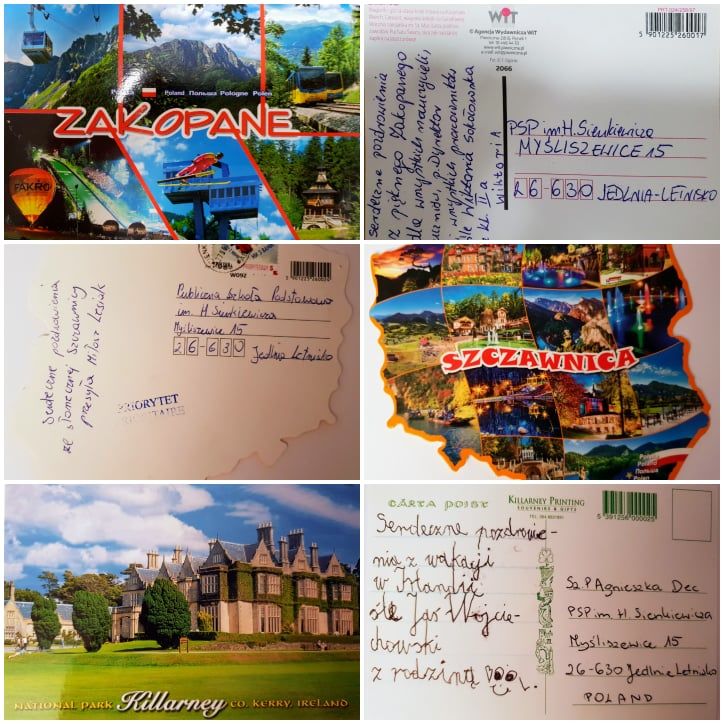 Polska Poland Польша Pologne Polen
ZAKOPANE
FAKRO
WiT
© Agencja Wydawnicza WiT
2066
PKT 024/259/97
5901225260017
Serdeczne pozdrowienia
z pięknego Zakopanego
dla wszystkich nauczycieli,
uczniów, p. Dyrektor
i wszystkich pracowników
śle Wiktoria Sokołowska
z kl. II a
Wiktoria
PSP im H. Sienkiewicza
MYŚLISZEWICE 15
26-630 JEDLNIA-LETNISKO
Serdeczne pozdrowienia
ze słonecznej Szczawnicy
przesyła Miłosz Lesiak
PRIORYTET
PRIORITAIRE
W092
Publiczna Szkoła Podstawowa
im. H Sienkiewicza
Myśliszewice 15
26-630 Jedlnia Letnisko
SZCZAWNICA
Polska
Poland
Польша
Polen
NATIONAL PARK Killarney CO. KERRY, IRELAND
CÁRTA POIST
KILLARNEY PRINTING
SOUVENIRS & GIFTS
5391256000025
Serdeczne pozdrowie-
nia z wakacji
w Irlandii
śle Jaś Wojcie-
chowski
z rodziną
Sz.P Agnieszka Dec
PSP im. H. Sienkiewicza
Myśliszewice 15
26-630 Jedlnia Letnisko
POLAND